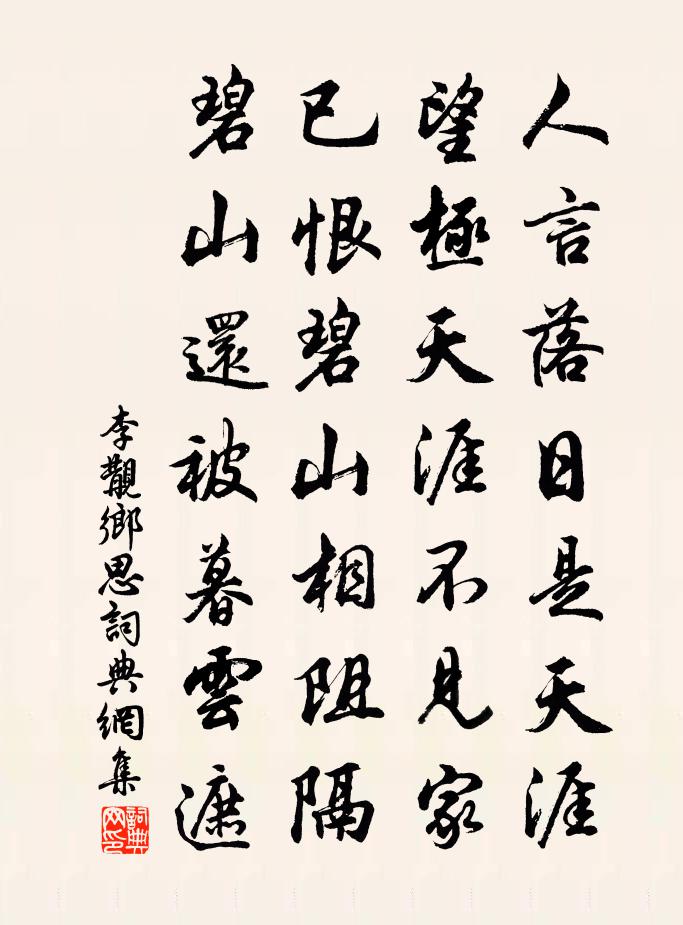 人言落日是天涯
望極天涯不見家
已恨碧山相阻隔
碧山還被暮雲遮
李觀鄉思詞典網集
詞典
网印